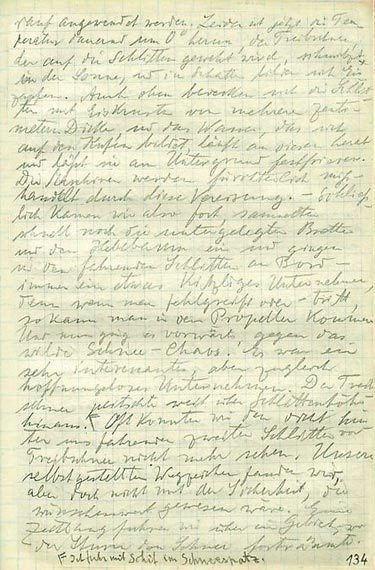 rauf angewendet werden. Leider ist jetzt die Tem
peratur dauernd um 0° herum, der Treibschnee,
der auf die Schlitten geweht wird, schmilzt
in der Sonne, und im Schatten bilden sich Eis
zapfen. Auch oben bedecken sich die Schlit
ten mit Eiskruste von mehreren Zenti-
metern Dicke, und das Wasser, das sich
auf den Kufen bildet, läuft an diesen herab
und läßt sie am Untergrund festfrieren.
Die Skier werden fürchterlich miß-
handelt durch diese Vereisung. – Schließ-
lich kamen wir also fort, sammelten
schnell noch die untergelegten Bretter
und den Hebebaum ein und gingen
in den fahrenden Schlitten an Bord –
immer ein etwas kitzliges Unternehmen,
denn wenn man fehlgreift oder -tritt,
so kann man in den Propeller kommen.
Und nun ging es vorwärts gegen das
wilde Schnee-Chaos! Es war ein
sehr interessantes, aber zugleich
hoffnungsloses Unternehmen. Der Treib
schnee reichte weit über Schlittenhöhe
hinaus. F Oft konnten wir den dicht hin
ter uns fahrenden zweiten Schlitten vor
Treibschnee nicht mehr sehen. Unsere
selbstgestellten Wegzeichen fanden wir,
aber doch nicht mit der Sicherheit, die
wünschenswert gewesen wäre. Eine
Zeitlang fuhren wir über ein Gebiet, wo
der Sturm den Schnee forträumte.
F Schuh mit Schil im Schneesatz.
134